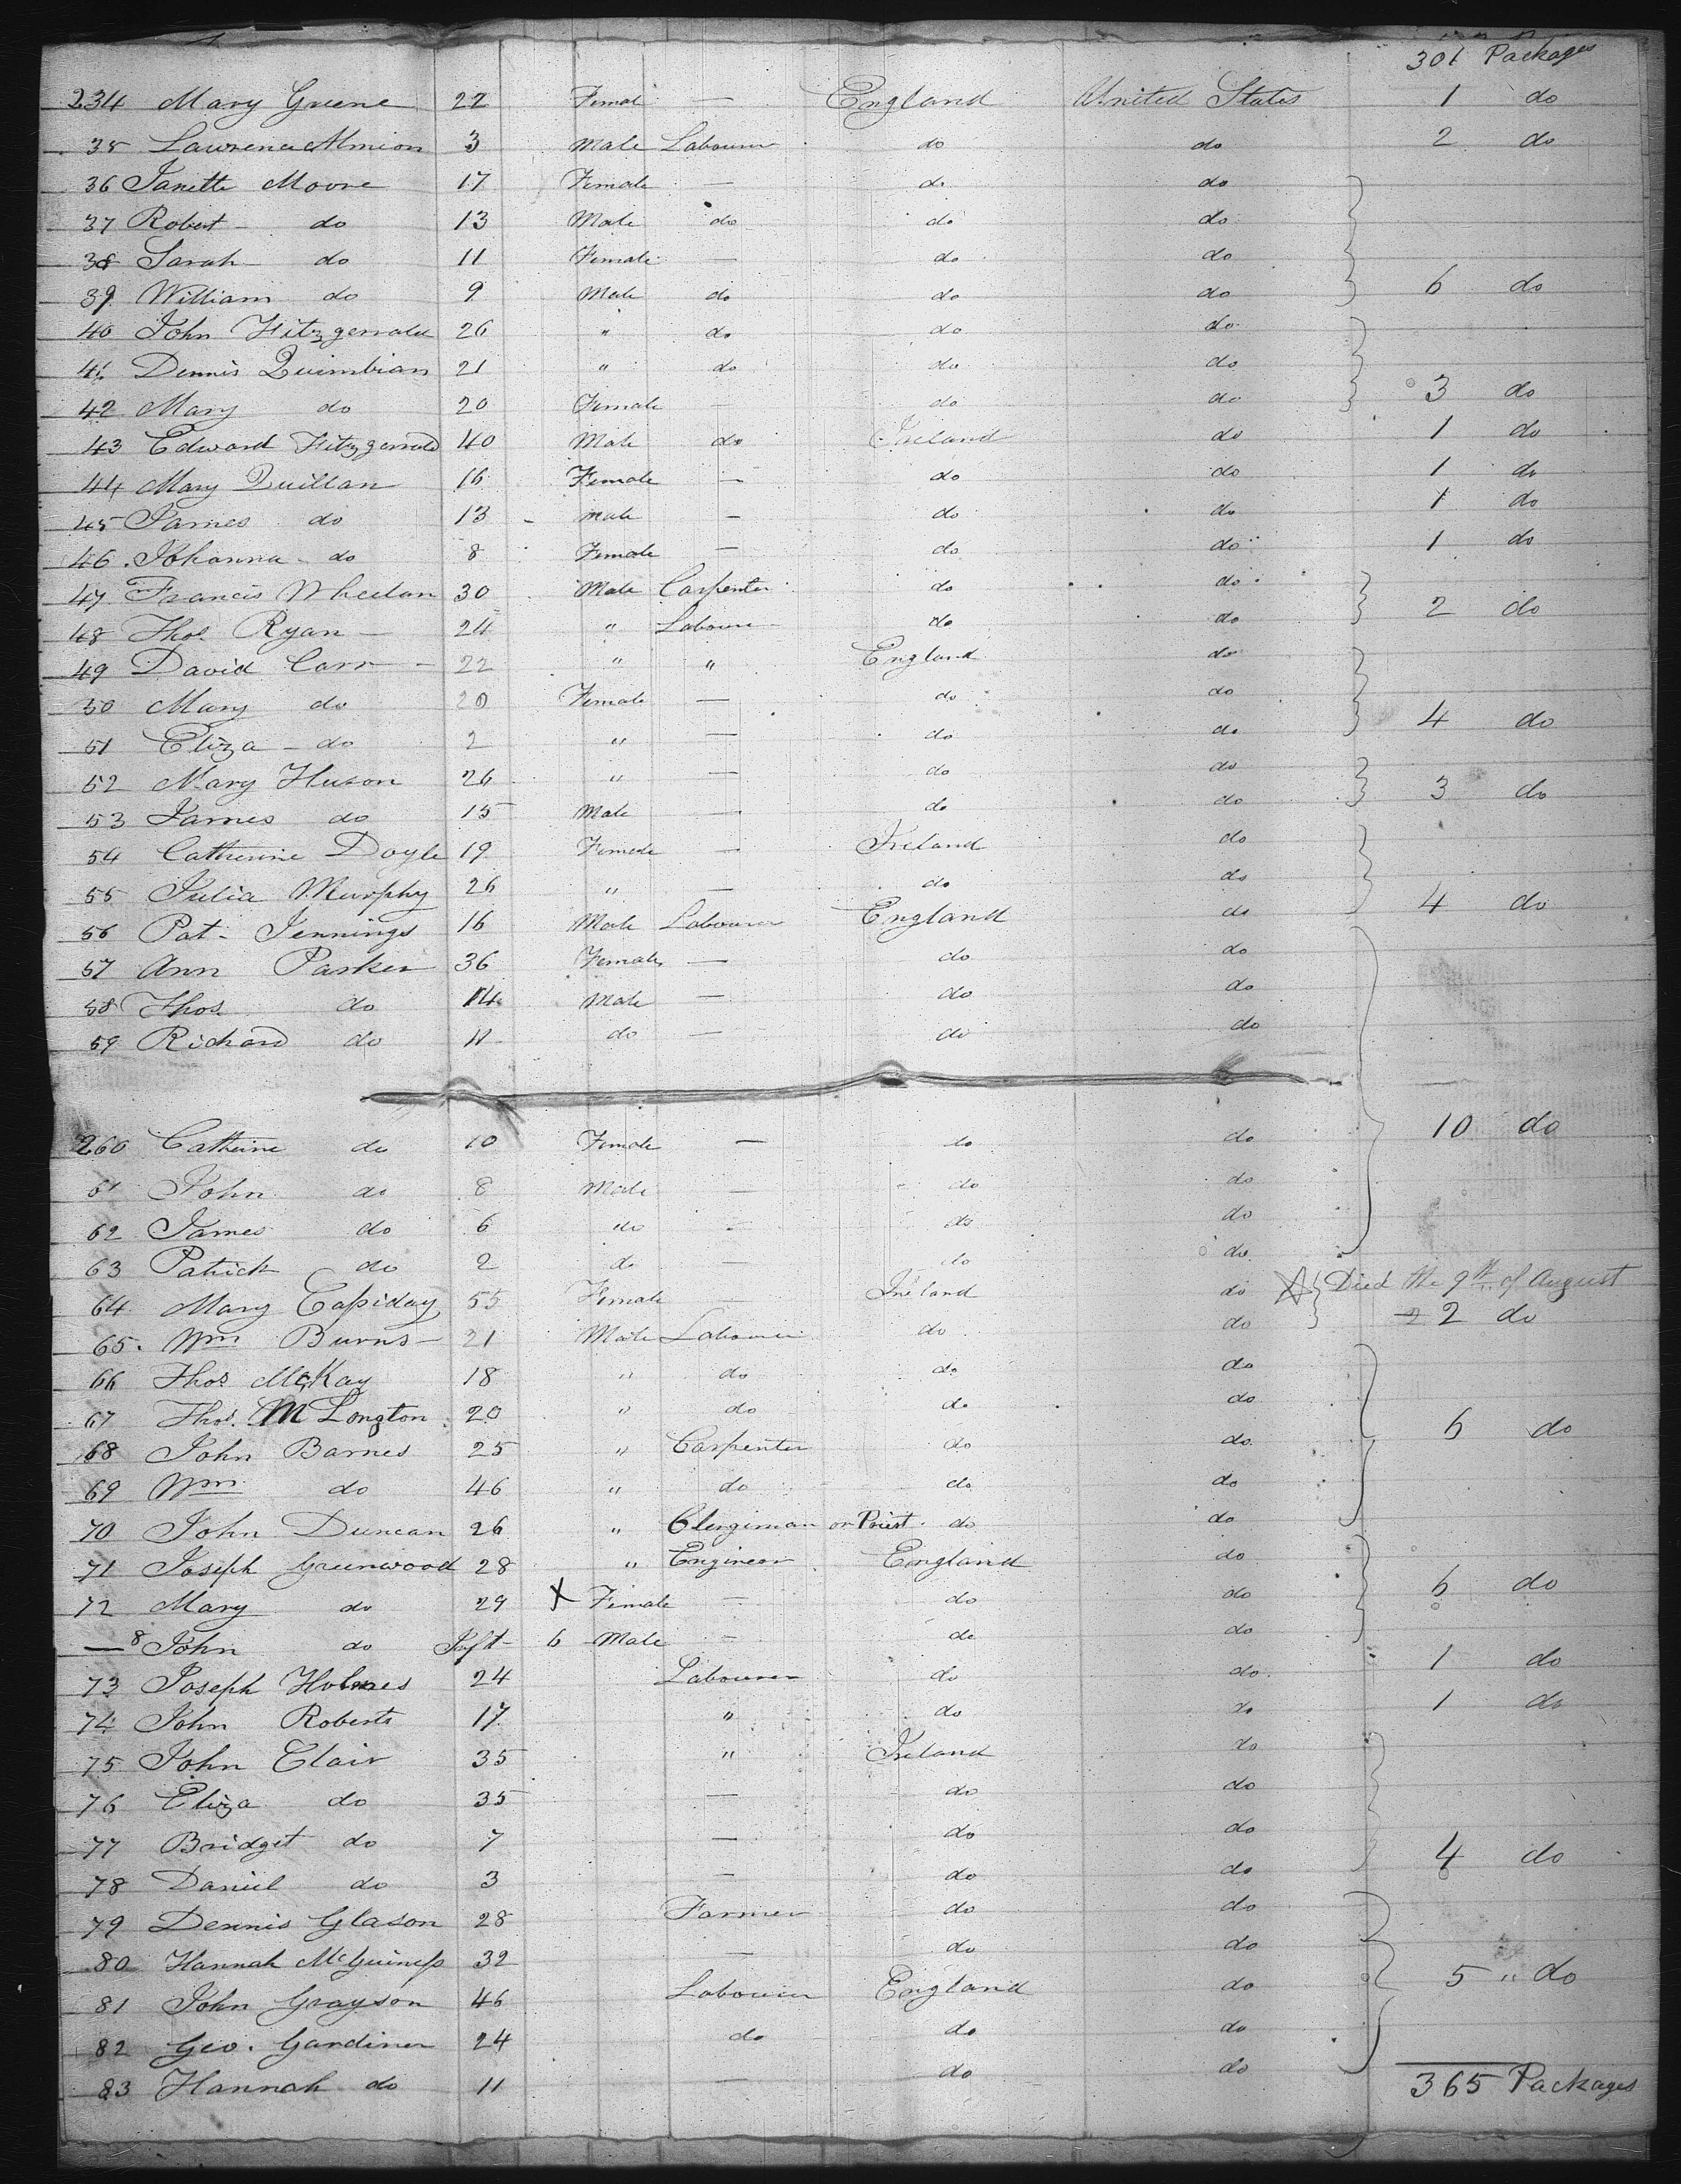 301 Packages
234 Mary Greene 22 Femal — England United States 1 do
35 Lawrence 3 Male Labourer do do 2 do
36 Janette Moore 17 Female — do do
37 Robert do 13 Male do do do
38 Sarah do 11 Female — do do
39 William do 9 Male do do do 6 do
40 John Fitzgerrald 26 " do do do
41 Dennis Quimbian 21 " do do do
42 Mary do 20 Female — do do 3 do
43 Edward Fitzgerrald 40 Male do Ireland do 1 do
44 Mary Quillan 16 Female — do do 1 do
45 James do 13 Male — do do 1 do
46 Johanna do 8 Female — do do 1 do
47 Francis Wheelan 30 Male Carpenter do do
48 Thos. Ryan 24 " Labourer do do 2 do
49 David Carr 22 " " England do
50 Mary do 20 Female — do do
51 Eliza do 2 " — do do 4 do
52 Mary Huson 26 " — do do
53 James do 15 Male — do do 3 do
54 Catherine Doyle 19 Female — Ireland do
55 Julia Murphy 26 " — do do
56 Pat. Jennings 16 Male Labourer England do 4 do
57 Ann Parker 36 Female — do do
58 Thos. do 14 Male — do do
59 Richard do 11 do — do do
260 Catherine do 10 Female — do do 10 do
61 John do 8 Male — do do
62 James do 6 do — do do
63 Patrick do 2 do — do do
64 Mary Cassiday 55 Female — Ireland do Died the 9th of August
65. Wm Burns 21 Male Labourer do do 2 do
66 Thos McKay 18 " do do do
67 Thos. McLongton 20 " do do do
68 John Barnes 25 " Carpenter do do 6 do
69 Wm do 46 " do do do
70 John Duncan 26 " Clergiman or Priest do do
71 Joseph Greenwood 28 " Engineer England do
72 Mary do 29 X Female — do do 6 do
— 8 John do Inft 6 Male — do do
73 Joseph Holmes 24 Labourer do do 1 do
74 John Roberts 17 " do do 1 do
75 John Clair 35 " Ireland do
76 Eliza do 35 — do do
77 Bridget do 7 — do do
78 Daniel do 3 — do do 4 do
79 Dennis Glason 28 Farmer do do
80 Hannah McGuiness 32 — do do
81 John Grayson 46 Labourer England do 5 " do
82 Geo. Gardiner 24 do do do
83 Hannah do 11 — do do
365 Packages